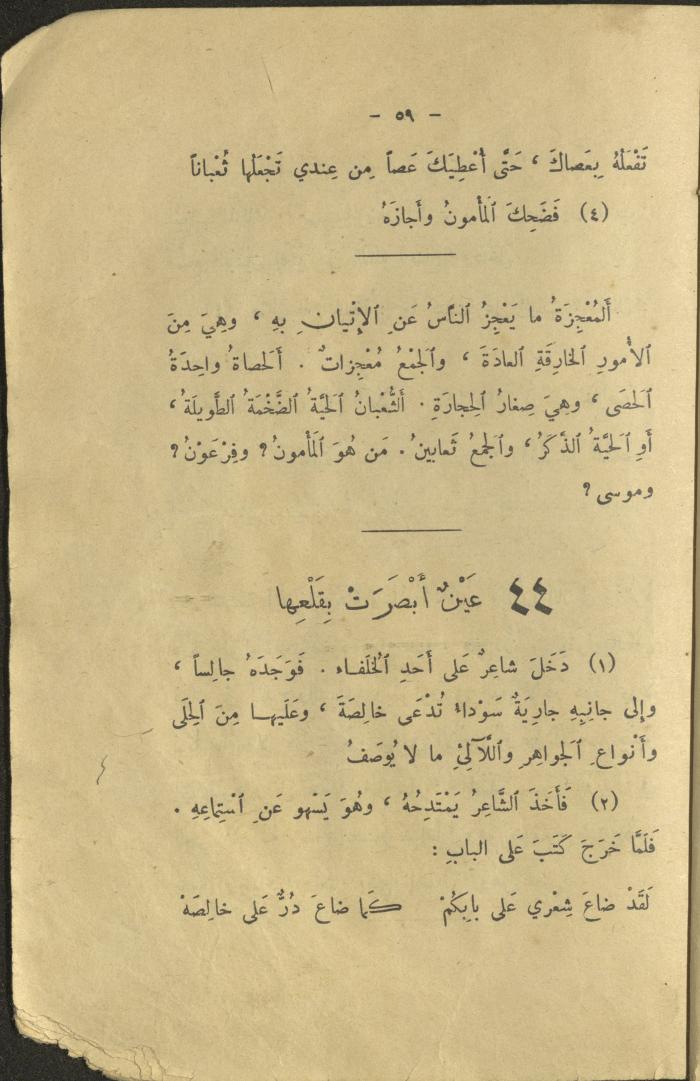 - ٥٩ -
تَفْعَلُهُ بِعَصاكَ ، حَتَّى أُعْطِيَكَ عَصاً مِن عِندي تَجْعَلُها ثُعْباناً
(٤) فَضَحِكَ ٱلمَأْمونُ وأَجازَهُ
أَلمُعْجِزَةُ ما يَعْجِزُ ٱلنّاسُ عَنِ ٱلإِتْيانِ بِهِ ، وهِيَ مِنَ
ٱلأُمورِ ٱلخارِقَةِ ٱلعادَةَ ، وٱلجَمْعُ مُعْجِزاتٌ . أَلحَصاةُ واحِدَةُ
ٱلحَصَى ، وهِيَ صِغارُ ٱلحِجارَةِ . أَلثُّعْبانُ ٱلحَيَّةُ ٱلضَّخْمَةُ ٱلطَّويلَةُ ،
أَوِ ٱلحَيَّةُ ٱلذَّكَرُ ، وٱلجَمعُ ثَعابينُ . مَن هُوَ ٱلمَأْمونُ ؟ وفِرْعَوْنُ ؟
وموسى ؟
٤٤ عَيْنٌ أَبْصَرَتْ بِقَلْعِها
(١) دَخَلَ شاعِرٌ عَلى أَحَدِ ٱلخُلَفاء . فَوَجَدَهُ جالِساً ،
وإِلى جانِبِهِ جارِيَةٌ سَوْداءُ تُدْعَى خالِصَةَ ، وعَلَيها مِنَ ٱلحِلَى
وأَنْواعِ ٱلجَواهِرِ وٱللَّآلِئِ ما لا يُوصَفُ
(٢) فَأَخَذَ ٱلشَّاعِرُ يَمْتَدِحُهُ ، وهُوَ يَسْهو عَنِ ٱسْتِماعِهِ .
فَلَمَّا خَرَجَ كَتَبَ عَلى البابِ :
لَقَدْ ضاعَ شِعْري عَلى بابِكُمْ كَما ضاعَ دُرٌّ عَلى خالِصَهْ